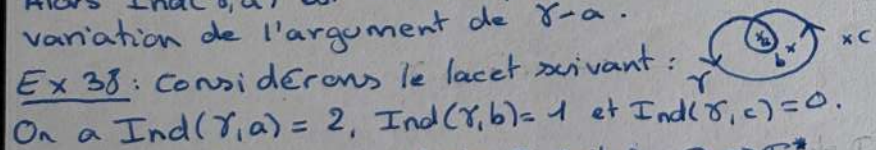 Alors Ind(γ,a)
variation de l'argument de γ-a.
Ex 38: Considérons le lacet suivant: γ xa b x xC
On a Ind(γ,a) = 2, Ind(γ,b)= 1 et Ind(γ,c)=0.